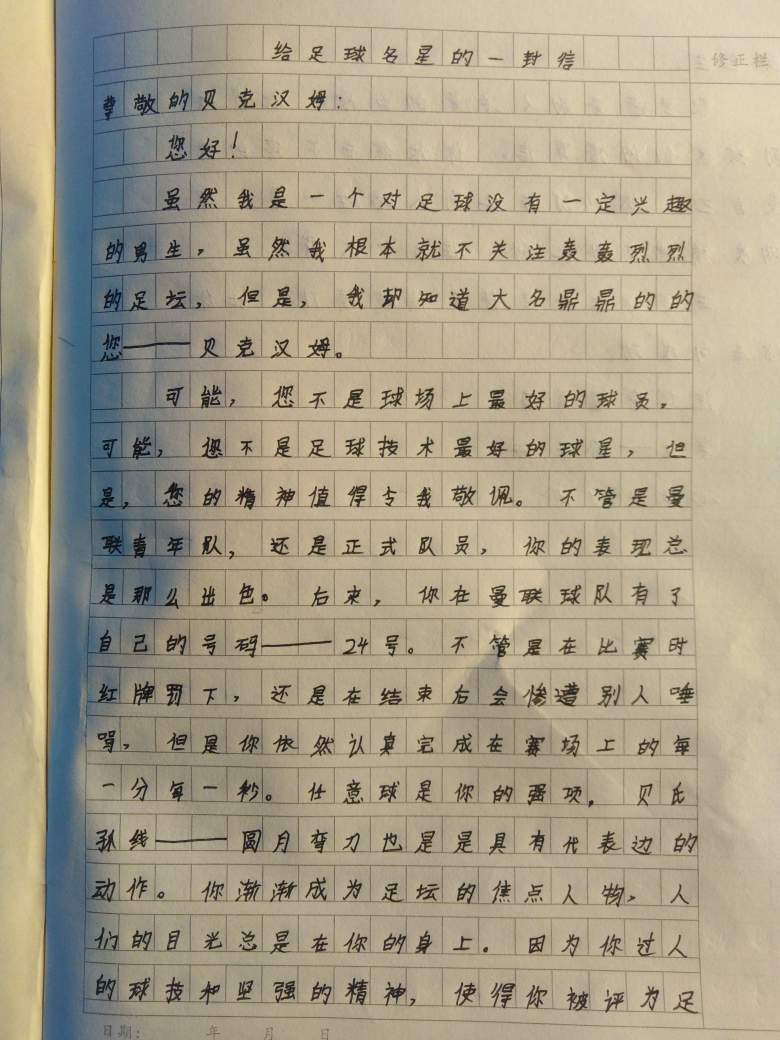 给足球名星的一封信
修正栏
尊敬的贝克汉姆：
您好！
虽然我是一个对足球没有一定兴趣
的男生，虽然我根本就不关注轰轰烈烈
的足坛，但是，我却知道大名鼎鼎的的
您——贝克汉姆。
可能，您不是球场上最好的球员，
可能，您不是足球技术最好的球星，但
是，您的精神值得令我敬佩。不管是曼
联青年队，还是正式队员，你的表现总
是那么出色。后来，你在曼联球队有了
自己的号码——24号。不管是在比赛时
红牌罚下，还是在结束后会惨遭别人唾
骂，但是你依然认真完成在赛场上的每
一分每一秒。任意球是你的强项，贝氏
弧线——圆月弯刀也是是具有代表边的
动作。你渐渐成为足坛的焦点人物，人
们的目光总是在你的身上。因为你过人
的球技和坚强的精神，使得你被评为足
日期： 年 月 日